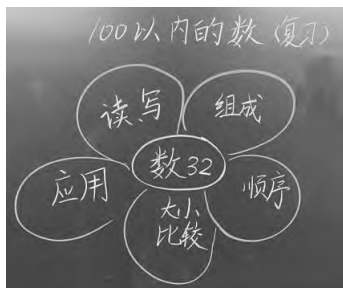 100以内的数（复习）
读写
组成
数32
应用
顺序
大小
比较